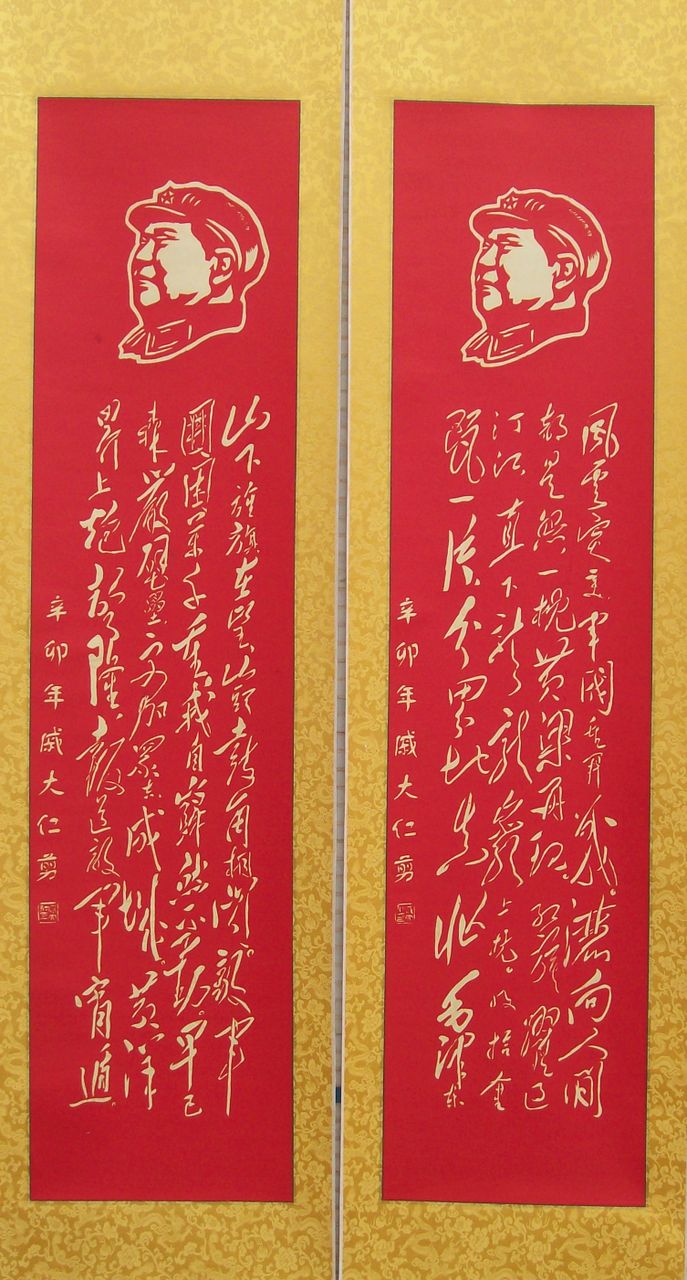 風雲突变軍閥重開战。灑向人間
都是怨一枕黄粱再现。红旗躍过
汀江直下龍巖上杭。收拾金
甌一片分田分地真忙 毛泽东
辛卯年戚大仁剪
山下旌旗在望山頭鼓角相闻。敵軍
圍困萬千重我自巋然不動。早已
森嚴壁壘更加眾志成城。黄洋
界上炮声隆報道敵軍宵遁。
辛卯年戚大仁剪